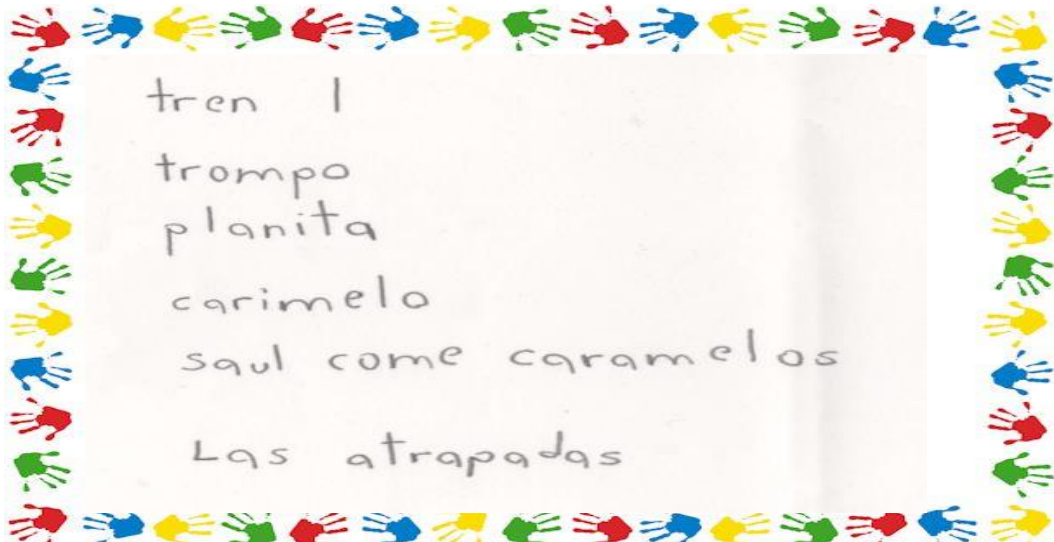 tren l
trompo
planita
carimelo
saul come caramelos
Las atrapadas